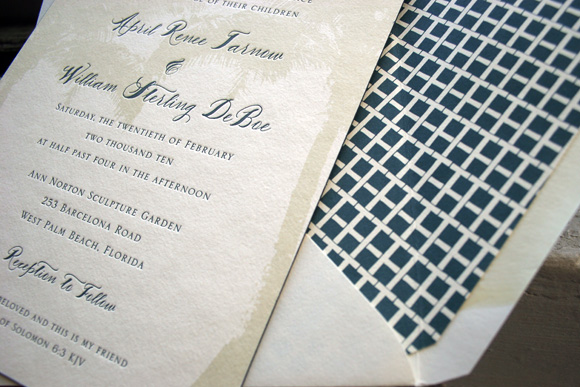 OF THEIR CHILDREN
April Renee Tarnow
&
William Sterling DeBoe
SATURDAY, THE TWENTIETH OF FEBRUARY
TWO THOUSAND TEN
AT HALF PAST FOUR IN THE AFTERNOON
ANN NORTON SCULPTURE GARDEN
253 BARCELONA ROAD
WEST PALM BEACH, FLORIDA
Reception to Follow
BELOVED AND THIS IS MY FRIEND
OF SOLOMON 6:3 KJV